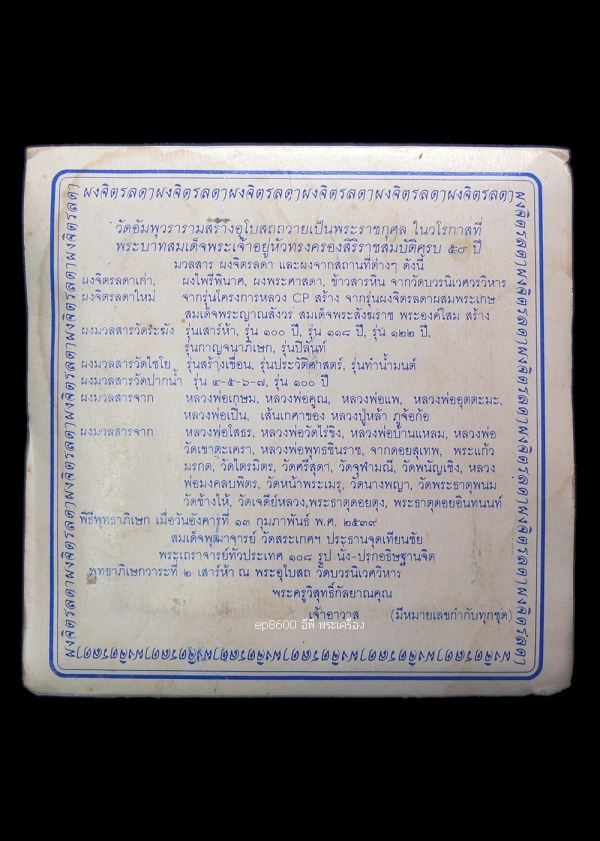 ผงจิตรลดาผงจิตรลดาผงจิตรลดาผงจิตรลดาผงจิตรลดาผงจิตรลดา
วัดอัมพวรารามสร้างอุโบสถถวายเป็นพระราชกุศล ในวโรกาสที่
พระบาทสมเด็จพระเจ้าอยู่หัวทรงครองสิริราชสมบัติครบ ๕๐ ปี
มวลสาร ผงจิตรลดา และผงจากสถานที่ต่างๆ ดังนี้
ผงจิตรลดาเก่า, ผงไพรีพินาศ, ผงพระศาสดา, ข้าวสารหิน จากวัดบวรนิเวศวรวิหาร
ผงจิตรลดาใหม่ จากรุ่นโครงการหลวง CP สร้าง จากรุ่นผงจิตรลดาผสมพระเกษ
สมเด็จพระญาณสังวร สมเด็จพระสังฆราช พระองค์โสม สร้าง
ผงมวลสารวัดระฆัง รุ่นเสาร์ห้า, รุ่น ๑๐๐ ปี, รุ่น ๑๑๘ ปี, รุ่น ๑๒๒ ปี,
รุ่นกาญจนาภิเษก, รุ่นปิลันท์
ผงมวลสารวัดไชโย รุ่นสร้างเขื่อน, รุ่นประวัติศาสตร์, รุ่นทำน้ำมนต์
ผงมวลสารวัดปากน้ำ รุ่น ๔-๕-๖-๗, รุ่น ๑๐๐ ปี
ผงมวลสารจาก หลวงพ่อเกษม, หลวงพ่อคูณ, หลวงพ่อแพ, หลวงพ่ออุตตะมะ,
หลวงพ่อเปิ่น, เส้นเกศาของ หลวงปู่หล้า ภูจ้อก้อ
ผงมวลสารจาก หลวงพ่อโสธร, หลวงพ่อวัดไร่ขิง, หลวงพ่อบ้านแหลม, หลวงพ่อ
วัดเขาตะเครา, หลวงพ่อพุทธชินราช, จากดอยสุเทพ, พระแก้ว
มรกต, วัดไตรมิตร, วัดศรีสุดา, วัดจุฬามณี, วัดพนัญเชิง, หลวง
พ่อมงคลบพิตร, วัดหน้าพระเมรุ, วัดนางพญา, วัดพระธาตุพนม
วัดช้างให้, วัดเจดีย์หลวง,พระธาตุดอยตุง, พระธาตุดอยอินทนนท์
พิธีพุทธาภิเษก เมื่อวันอังคารที่ ๑๓ กุมภาพันธ์ พ.ศ. ๒๕๓๙
สมเด็จพุฒาจารย์ วัดสระเกศฯ ประธานจุดเทียนชัย
พระเถราจารย์ทั่วประเทศ ๑๐๘ รูป นั่ง-ปรุกอธิษฐานจิต
พุทธาภิเษกวาระที่ ๒ เสาร์ห้า ณ พระอุโบสถ วัดบวรนิเวศวิหาร
พระครูวิสุทธิ์กัลยาณคุณ
เจ้าอาวาส (มีหมายเลขกำกับทุกชุด)
ep8600 อีพี พระเครื่อง
ผงจิตรลดาผงจิตรลดาผงจิตรลดาผงจิตรลดาผงจิตรลดาผงจิตรลดา
ผงจิตรลดาผงจิตรลดาผงจิตรลดาผงจิตรลดาผงจิตรลดาผงจิตรลดา
ผงจิตรลดาผงจิตรลดาผงจิตรลดาผงจิตรลดาผงจิตรลดาผงจิตรลดา